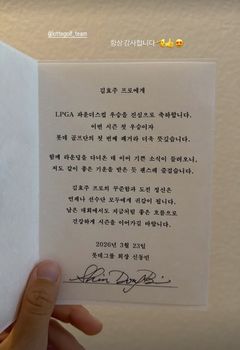 @lottegolf_team
항상 감사합니다
김효주 프로에게
LPGA 파운더스컵 우승을 진심으로 축하합니다.
이번 시즌 첫 우승이자
롯데 골프단의 첫 번째 쾌거라 더욱 뜻깊습니다.
함께 라운딩을 다녀온 데 이어 기쁜 소식이 들려오니,
저도 같이 좋은 기운을 받은 듯 팬스레 즐겁습니다.
김효주 프로의 꾸준함과 도전 정신은
언제나 선수단 모두에게 귀감이 됩니다.
남은 대회에서도 지금처럼 좋은 흐름으로
건강하게 시즌을 이어가길 바랍니다.
2026년 3월 23일
롯데그룹 회장 신동빈
Shin Dong Bin